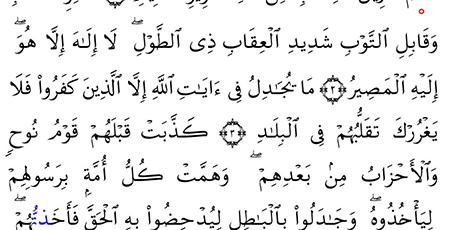 وَقَابِلِ اِ۬لتَّوْبِ شَدِيدِ اِ۬لْعِقَابِ ذِى اِ۬لطَّوْلِۖ لَا إِلَٰهَ إِلَّا هُوَۖ
إِلَيْهِ اِ۬لْمَصِيرُ ﴿٢﴾ مَا يُجَٰدِلُ فِى ءَايَٰتِ اِ۬للَّهِ إِلَّا اَ۬لَّذِينَ كَفَرُوا۟ فَلَا
يَغْرُرْكَ تَقَلُّبُهُمْ فِى اِ۬لْبِلَٰدِ ﴿٣﴾ كَذَّبَتْ قَبْلَهُمْ قَوْمُ نُوحٍ
وَالْأَحْزَابُ مِنۢ بَعْدِهِمْۖ وَهَمَّتْ كُلُّ أُمَّةِۭ بِرَسُولِهِمْ
لِيَأْخُذُوهُۖ وَجَٰدَلُوا۟ بِالْبَٰطِلِ لِيُدْحِضُوا۟ بِهِ اِ۬لْحَقَّ فَأَخَذتُّهُمْۖ